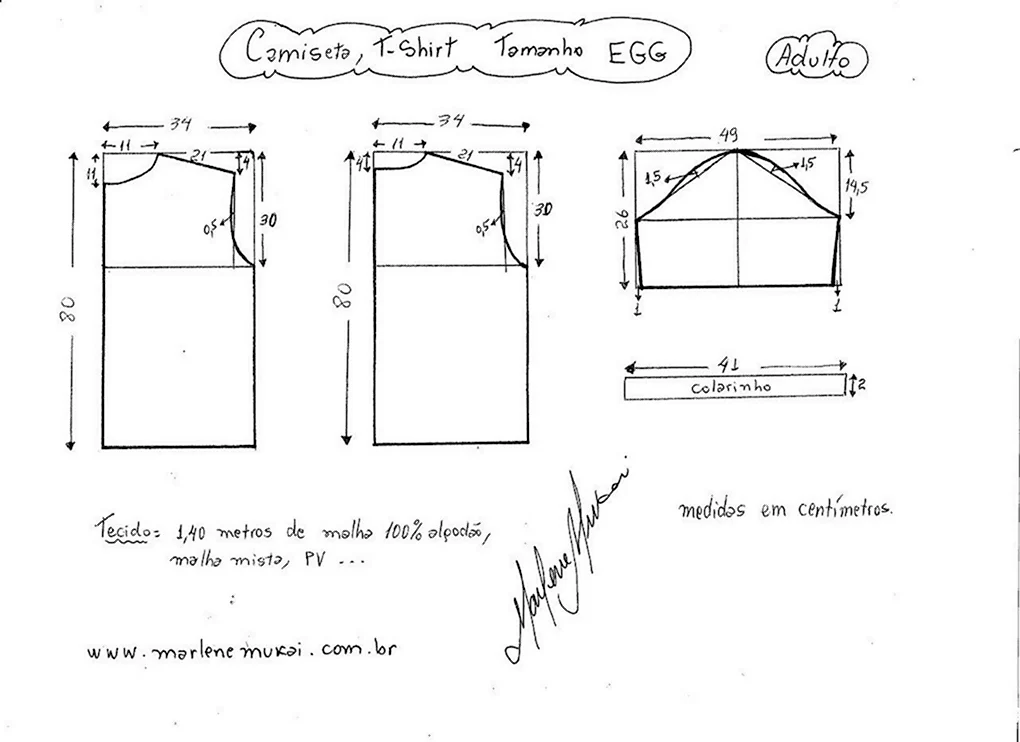 Camiseta, T-Shirt Tamanho EGG
Adulto
34
11
21
4
11
0,5
30
80
34
11
21
4
4
0,5
30
80
49
1,5
1,5
14,5
26
1
1
41
colarinho
2
medidas em centímetros.
Tecido= 1,40 metros de malha 100% algodão,
malha mista, PV ...
Marlene Mukai
www.marlenemukai.com.br